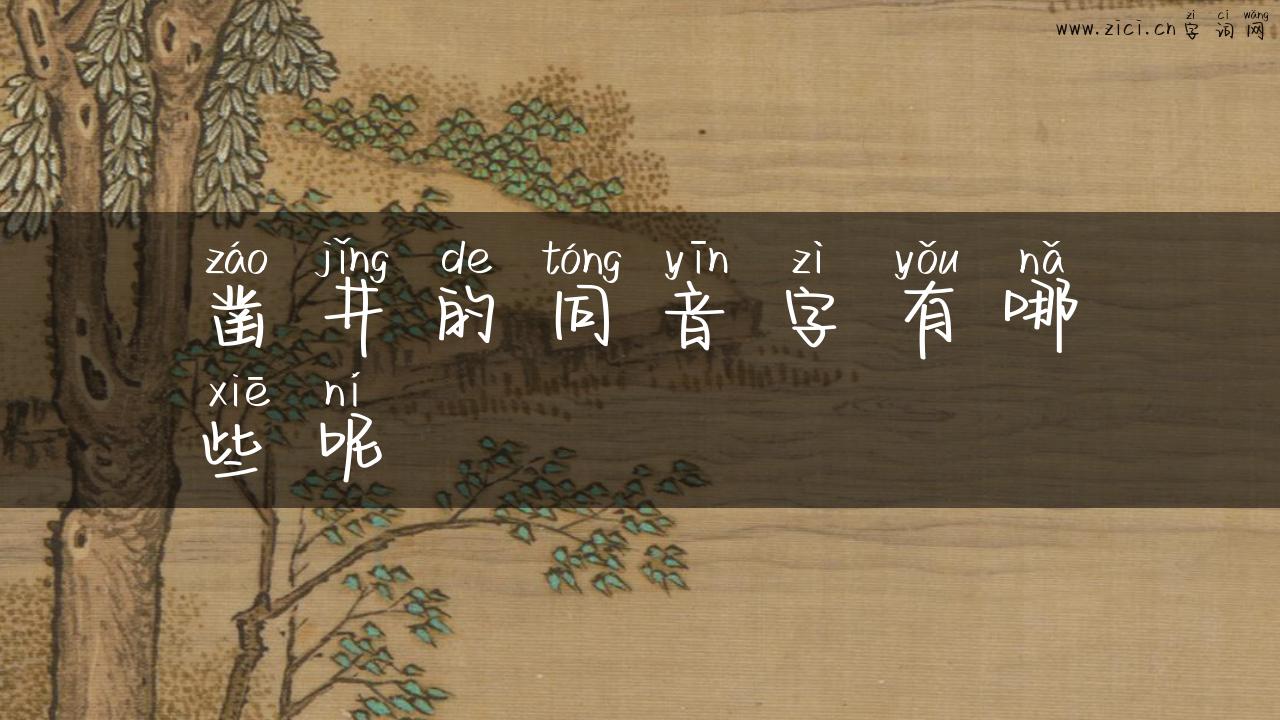 zì cí wǎng
www.zici.cn 字词网
záo jǐng de tóng yīn zì yǒu nǎ
凿井的同音字有哪
xiē ní
些呢